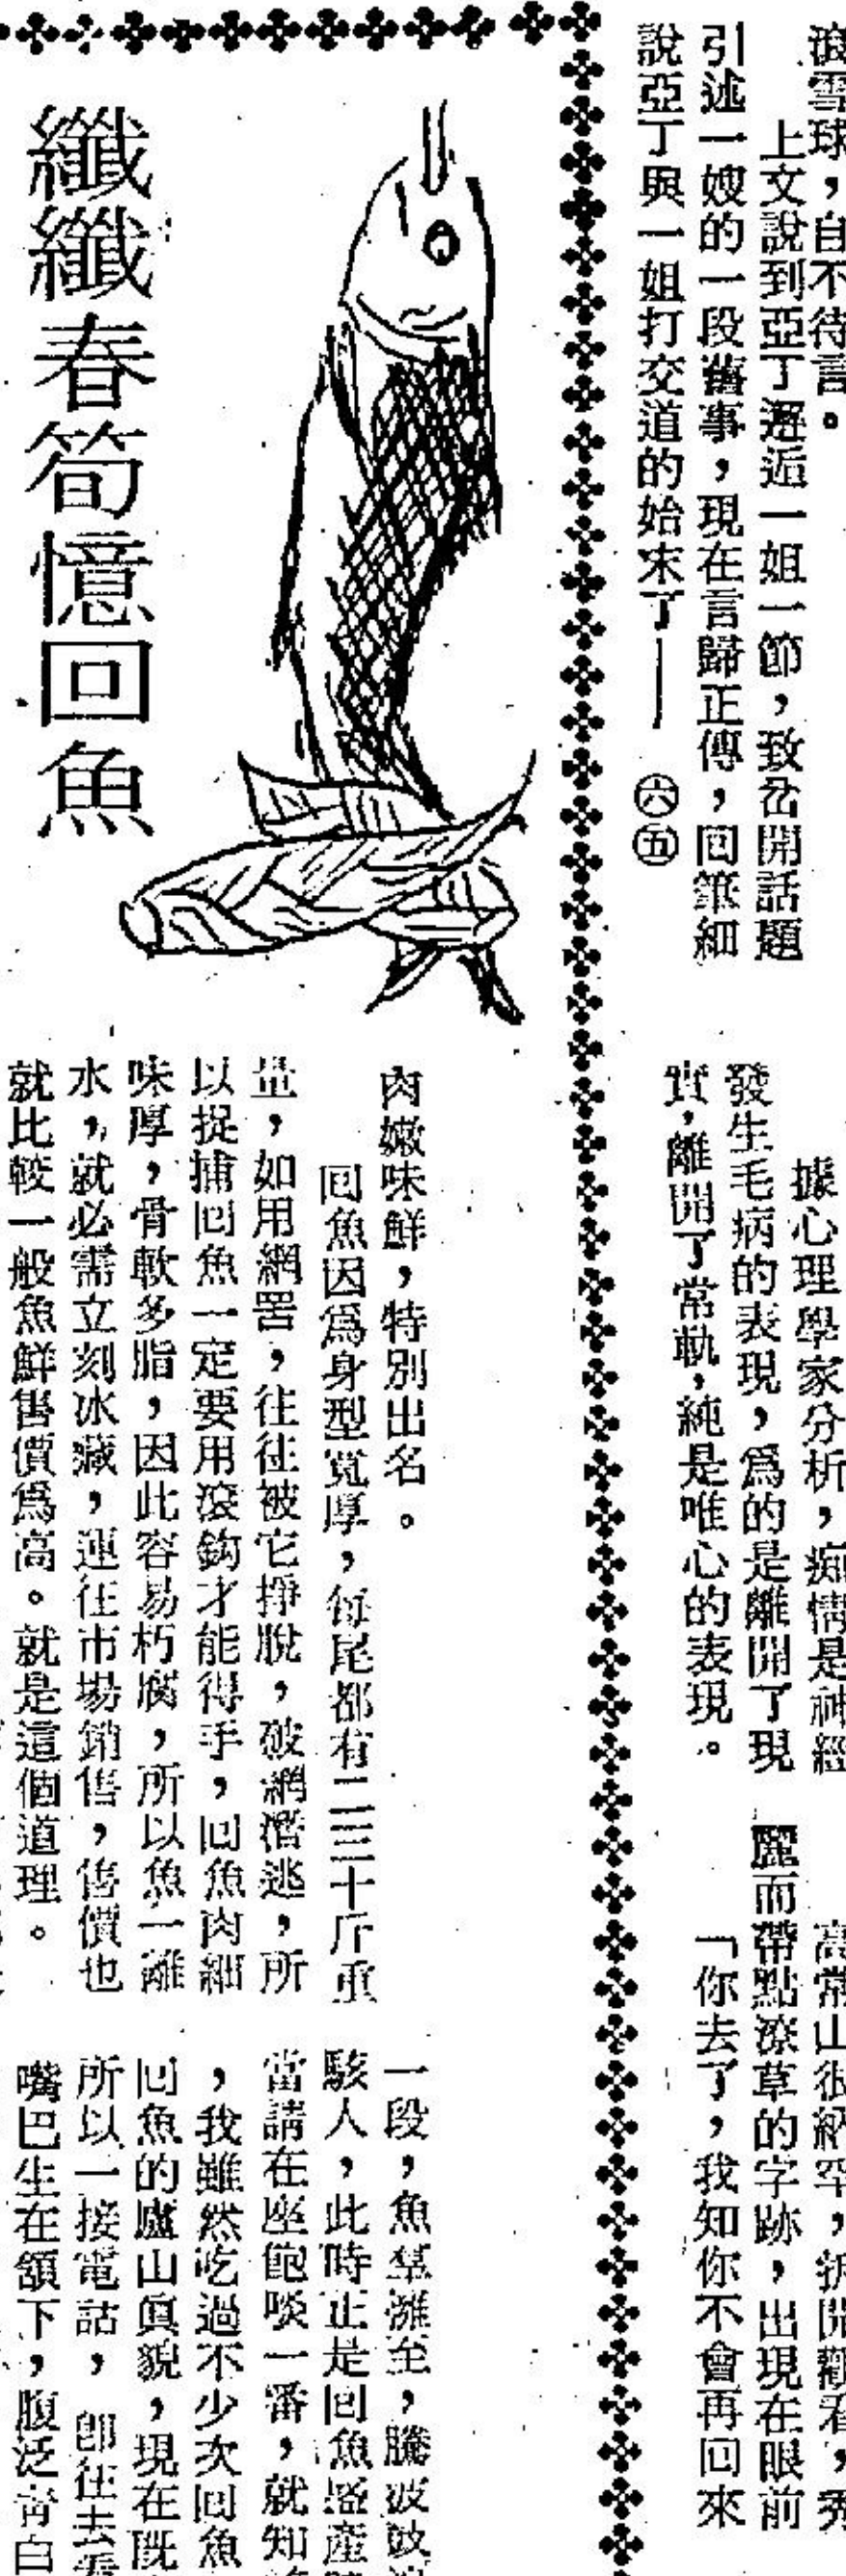 滾雪球，自不待言。
上文說到亞丁邂逅一姐一節，致岔開話題
引述一嫂的一段舊事，現在言歸正傳，回筆細
說亞丁與一姐打交道的始末了——　㊅㊄
據心理學家分析，痴情是神經
發生毛病的表現，爲的是離開了現
實，離開了常軌，純是唯心的表現。
高常山很納罕，拆開觀看，秀
麗而帶點潦草的字跡，出現在眼前
「你去了，我知你不會再回來
纖纖春筍憶回魚
肉嫩味鮮，特別出名。
回魚因爲身型寬厚，每尾都有二三十斤重
量，如用網罟，往往被它掙脫，破網潛逃，所
以捉捕回魚一定要用滾鈎才能得手，回魚肉細
味厚，骨軟多脂，因此容易朽腐，所以魚一離
水，就必需立刻冰藏，運往市場銷售，售價也
就比較一般魚鮮售價爲高。就是這個道理。
一段，魚羣濰至，騰波鼓
駭人，此時正是回魚盛產
當請在座飽啖一番，就知
，我雖然吃過不少次回魚
回魚的廬山眞貌，現在既
所以一接電話，卽往去看
嘴巴生在頷下，腹泛青白